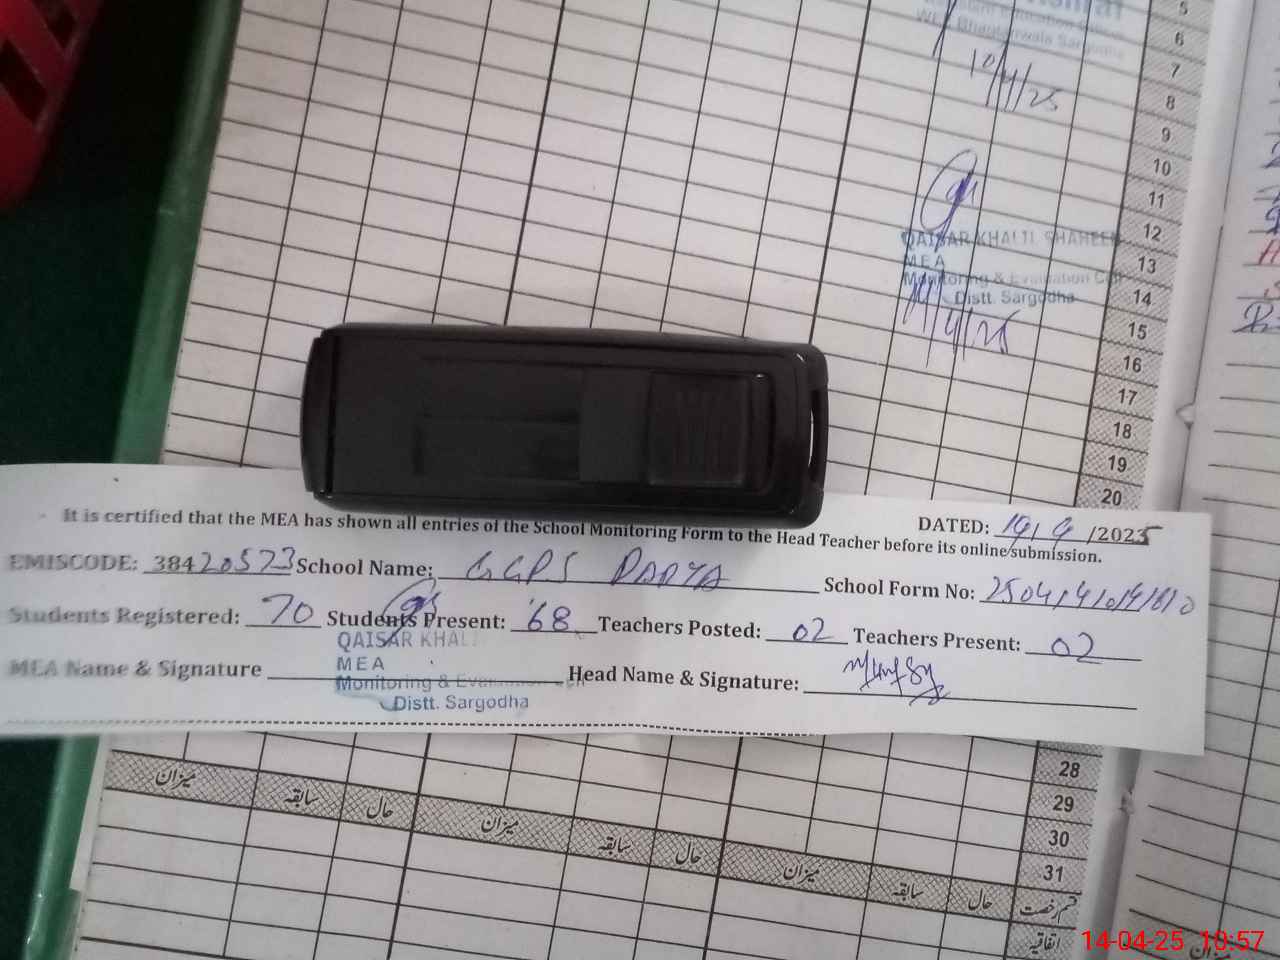 10/4/25
5
6
7
8
9
10
11
12
13
14
15
16
17
18
19
20
QAISAR KHALIL SHAHEEN
MEA
Monitoring & Evaluation Cell
Distt. Sargodha
14/4/25
DATED: 14/4/2025
It is certified that the MEA has shown all entries of the School Monitoring Form to the Head Teacher before its online submission.
EMISCODE: 38420573 School Name: GGPS School Form No:
Students Registered: 70 Students Present: 68 Teachers Posted: 02 Teachers Present: 02
MEA Name & Signature Head Name & Signature:
QAISAR KHALIL
MEA
Monitoring & Evaluation Cell
Distt. Sargodha
28
29
30
31
میزان سابقہ حال میزان سابقہ حال میزان سابقہ حال قسم رخصت
اتفاقیہ
میزان
14-04-25 10:57